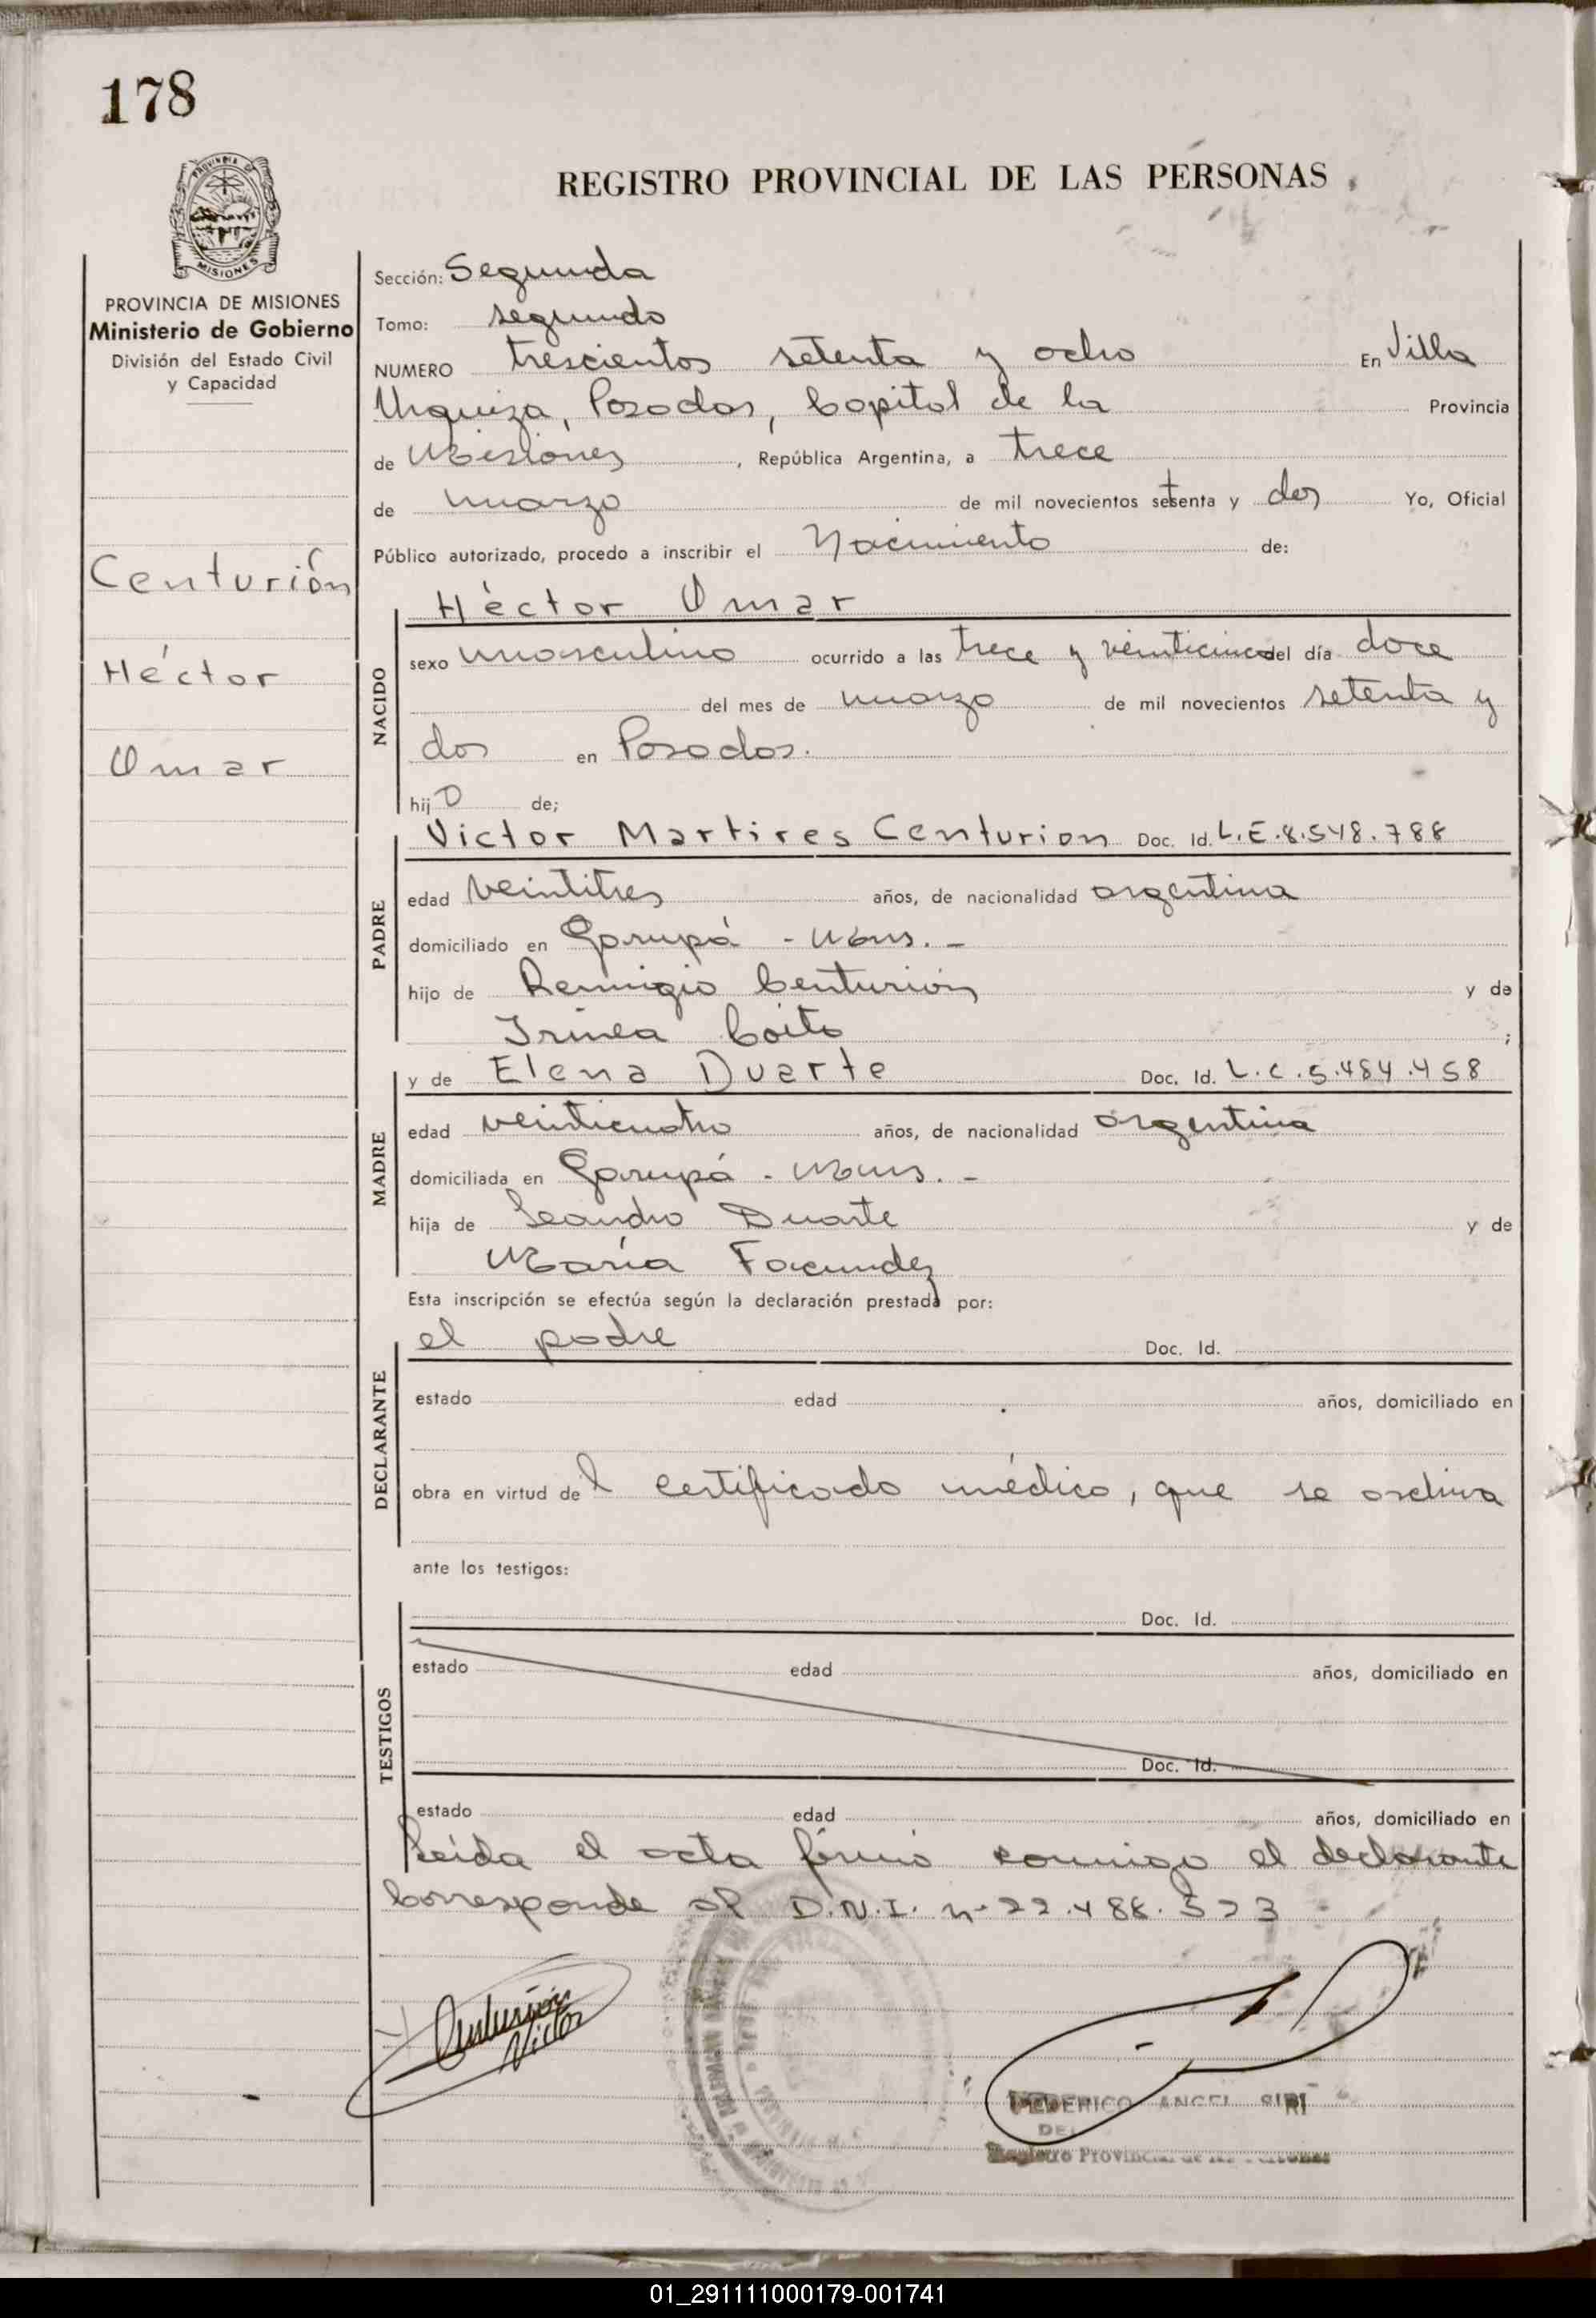 178
PROVINCIA DE
MISIONES
REGISTRO PROVINCIAL DE LAS PERSONAS
PROVINCIA DE MISIONES
Ministerio de Gobierno
División del Estado Civil
y Capacidad
Centurión
Héctor
Omar
Sección: Segunda
Tomo: segundo
NUMERO trescientos setenta y ocho En Villa
Urquiza, Posadas, Capital de la Provincia
de Misiones, República Argentina, a trece
de marzo de mil novecientos setenta y dos Yo, Oficial
Público autorizado, procedo a inscribir el Nacimiento de:
NACIDO
Héctor Omar
sexo masculino ocurrido a las trece y veinticinco del día doce
del mes de marzo de mil novecientos setenta y
dos en Posadas.
hijo de;
PADRE
Victor Martires Centurion Doc. Id. L.E.8.548.788
edad veintitres años, de nacionalidad argentina
domiciliado en Garupá - Mnes. -
hijo de Remigio Centurión y de
Irinea Coito ;
MADRE
y de Elena Duarte Doc. Id. L.C.5.484.458
edad veinticuatro años, de nacionalidad argentina
domiciliada en Garupá - Mnes. -
hija de Leandro Duarte y de
María Facundez
Esta inscripción se efectúa según la declaración prestada por:
DECLARANTE
el padre Doc. Id.
estado edad años, domiciliado en
obra en virtud del certificado médico, que se archiva
ante los testigos:
TESTIGOS
Doc. Id.
estado edad años, domiciliado en
Doc. Id.
estado edad años, domiciliado en
Leída el acta firmó conmigo el declarante
Corresponde al D.N.I. nº 22.488.523
Centurión
Victor
FEDERICO ANGEL SIRI
Registro Provincial de las Personas
01_291111000179-001741